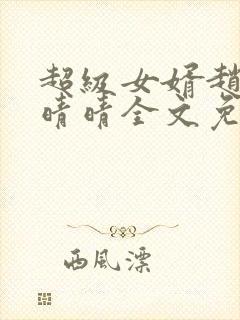 超級女婿趙
晴晴全文免
西風漂